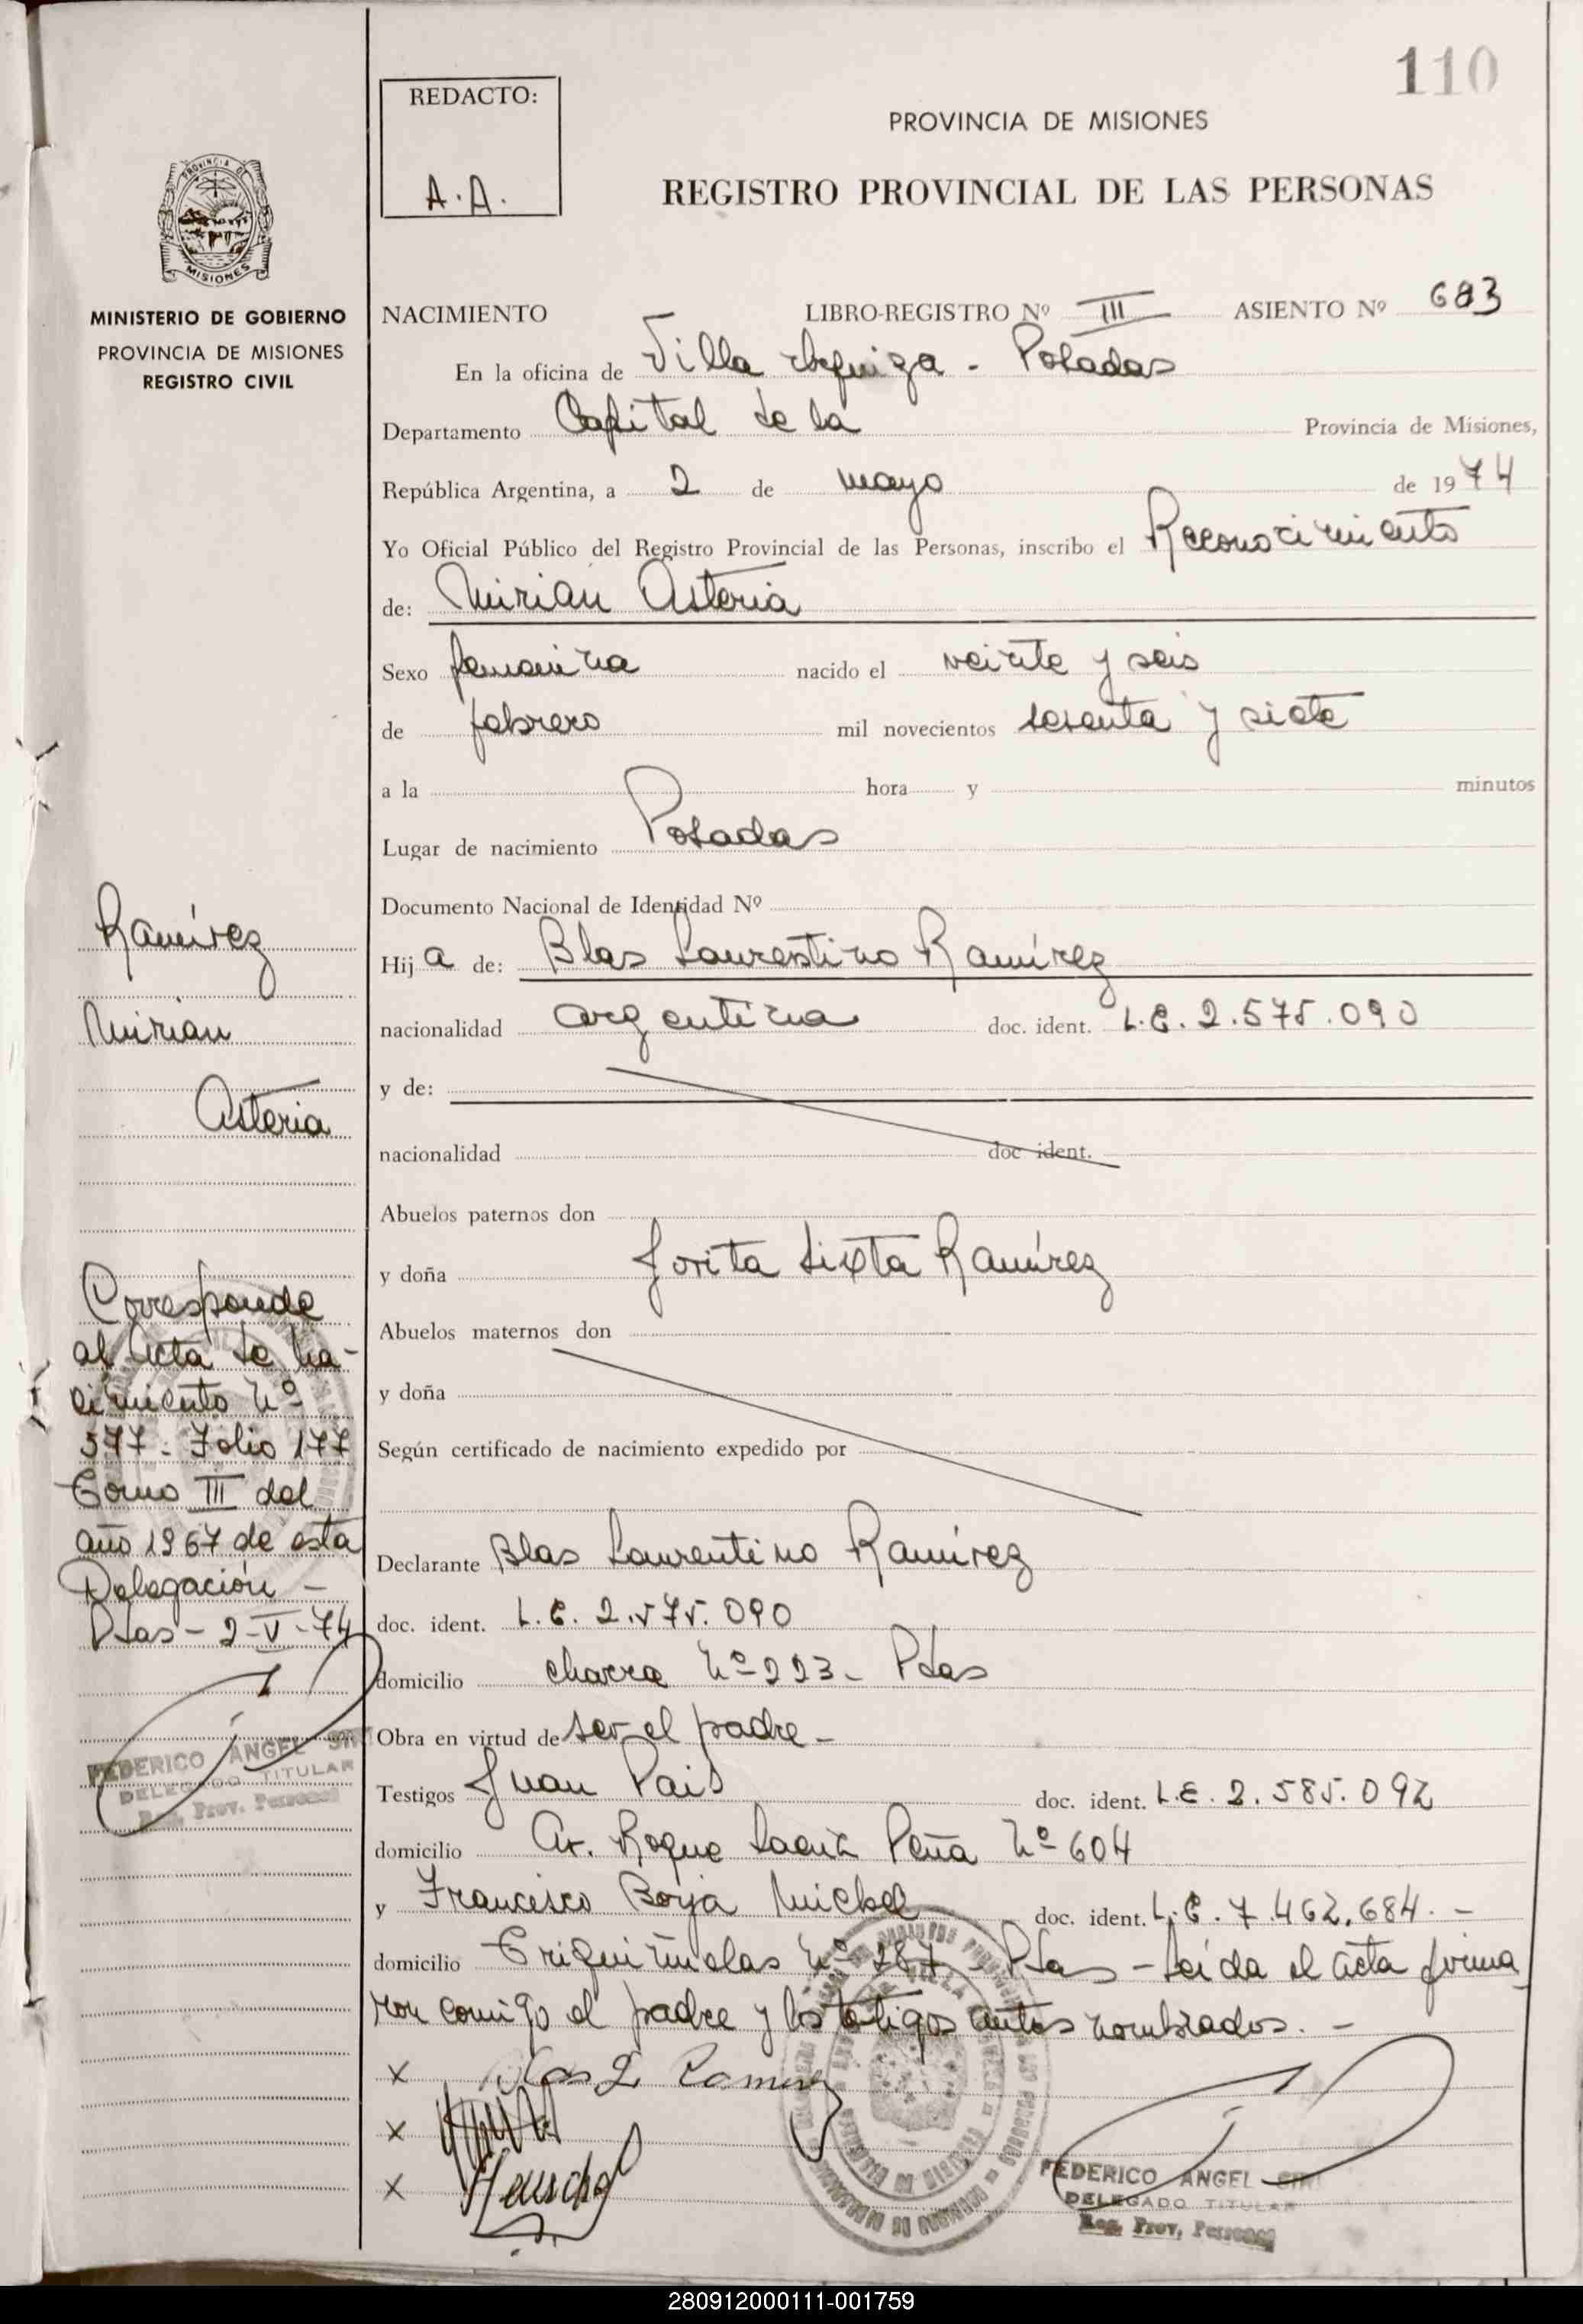 110
REDACTO:
A.A.
PROVINCIA DE MISIONES
REGISTRO PROVINCIAL DE LAS PERSONAS
PROVINCIA DE
MISIONES
MINISTERIO DE GOBIERNO
PROVINCIA DE MISIONES
REGISTRO CIVIL
NACIMIENTO LIBRO-REGISTRO Nº III ASIENTO Nº 683
En la oficina de Villa Urquiza - Posadas
Departamento Capital de la Provincia de Misiones,
República Argentina, a 2 de mayo de 1974
Yo Oficial Público del Registro Provincial de las Personas, inscribo el Reconocimiento
de: Mirian Asteria
Sexo femenina nacido el veinte y seis
de febrero mil novecientos sesenta y siete
a la hora y minutos
Lugar de nacimiento Posadas
Documento Nacional de Identidad Nº
Hij a de: Blas Laurentino Ramírez
nacionalidad argentina doc. ident. L.E. 2.575.090
y de:
nacionalidad doc ident.
Abuelos paternos don
y doña Jovita Sixta Ramírez
Abuelos maternos don
y doña
Según certificado de nacimiento expedido por
Declarante Blas Laurentino Ramírez
doc. ident. L.E. 2.575.090
domicilio chacra Nº 223 - Pdas
Obra en virtud de ser el padre -
Testigos Juan Pais doc. ident. L.E. 2.585.092
domicilio Av. Roque Saenz Peña Nº 604
y Francisco Borja Michel doc. ident. L.E. 7.462.684. -
domicilio Nº 287 - Pdas - Leída el acta firma
ron comigo el padre y los testigos antes nombrados. -
x Blas L Ramirez
x
x
FEDERICO ANGEL
DELEGADO TITULAR
Reg. Prov. Personas
Ramírez
Mirian
Asteria
Corresponde
al acta de na-
cimiento Nº
577 - Folio 177
Tomo III del
año 1967 de esta
Delegación -
Pdas - 2-V-74
FEDERICO ANGEL
DELEGADO TITULAR
Reg. Prov. Personas
280912000111-001759